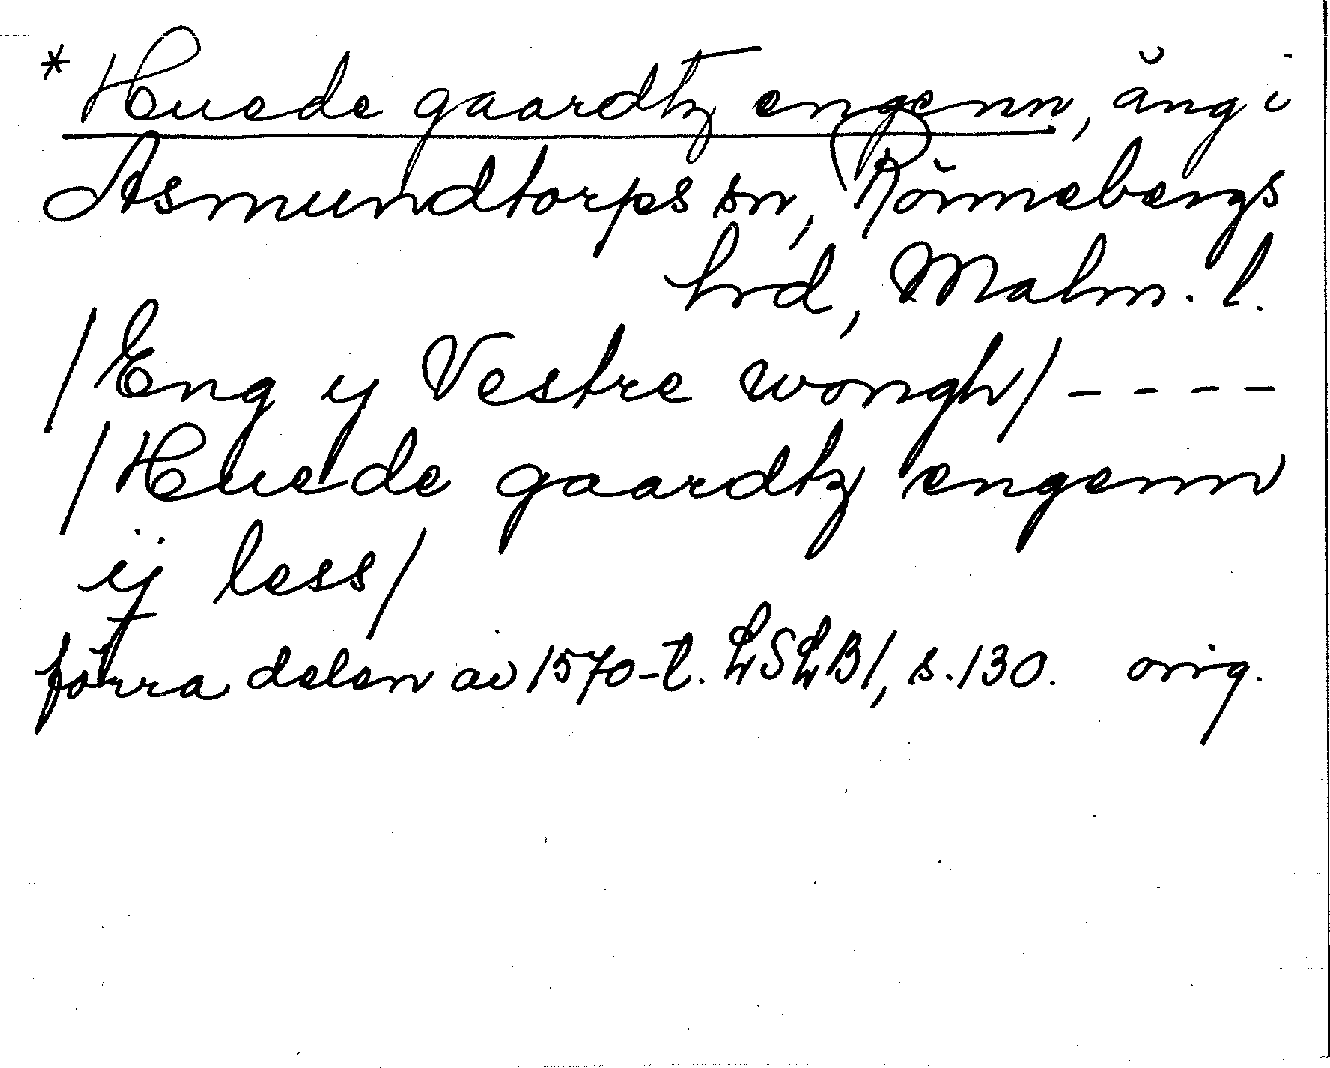 * Huede gaardtz engenn, äng i
Asmundtorps sn, Rönnebergs
hrd, Malm. l.
/Eng y Vestre wongh/ - - - -
/Huede gaardtz engenn
ij less/
förra delen av 1570-t. LSLB1, s. 130. orig.